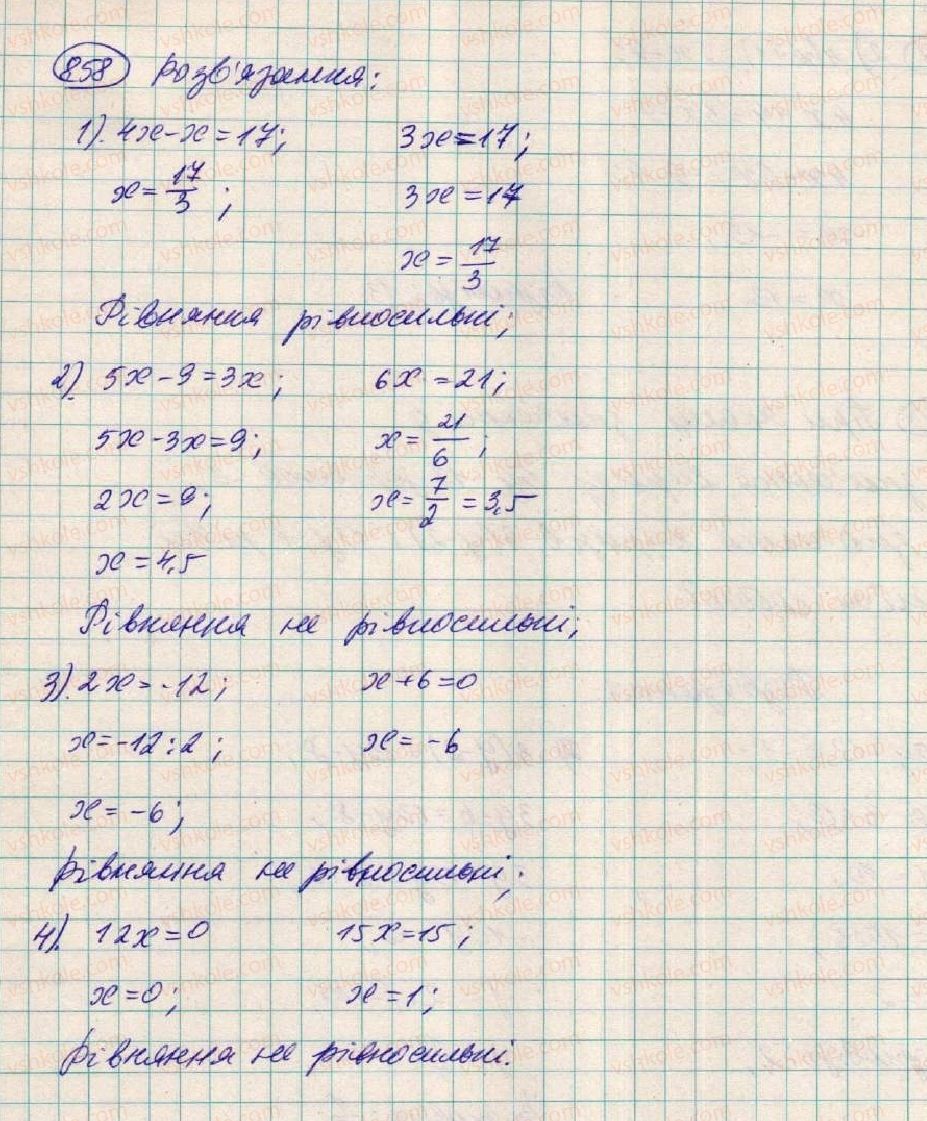 858 Розв'язання:
1). 4x-x=17; 3x=17;
x=17/3; 3x=17
x=17/3
Рівняння рівносильні;
2). 5x-9=3x; 6x=21;
5x-3x=9; x=21/6;
2x=9; x=7/2=3,5
x=4,5
Рівняння не рівносильні;
3). 2x=-12; x+6=0
x=-12:2; x=-6
x=-6;
Рівняння не рівносильні;
4). 12x=0 15x=15;
x=0; x=1;
Рівняння не рівносильні.